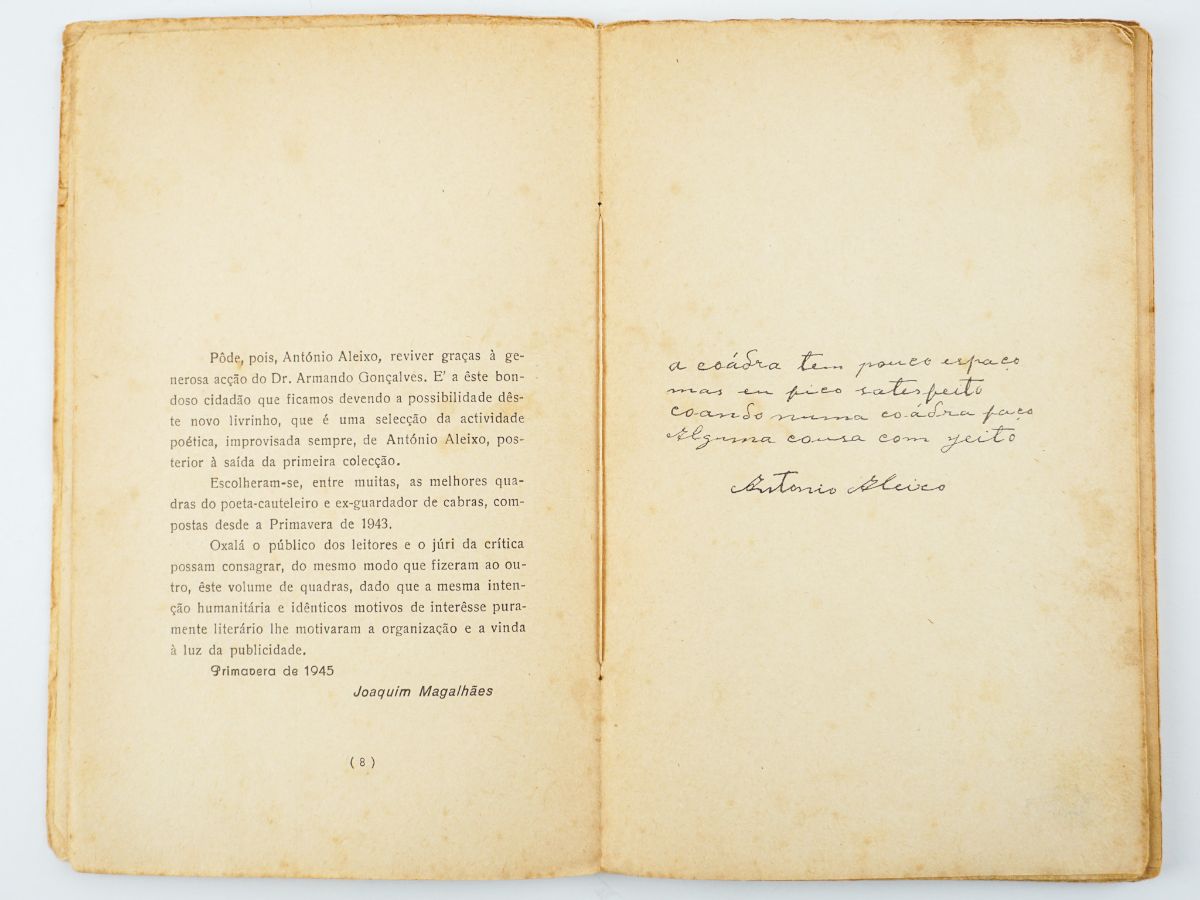 Pôde, pois, António Aleixo, reviver graças à ge-
nerosa acção do Dr. Armando Gonçalves. E' a êste bon-
doso cidadão que ficamos devendo a possibilidade dês-
te novo livrinho, que é uma selecção da actividade
poética, improvisada sempre, de António Aleixo, pos-
terior à saída da primeira colecção.
Escolheram-se, entre muitas, as melhores qua-
dras do poeta-cauteleiro e ex-guardador de cabras, com-
postas desde a Primavera de 1943.
Oxalá o público dos leitores e o júri da crítica
possam consagrar, do mesmo modo que fizeram ao ou-
tro, êste volume de quadras, dado que a mesma inten-
ção humanitária e idênticos motivos de interêsse pura-
mente literário lhe motivaram a organização e a vinda
à luz da publicidade.
Primavera de 1945
Joaquim Magalhães
( 8 )
a coádra tem pouco espaço
mas eu fico satesfeito
coando numa coádra faço
Alguma cousa com jeito
Antonio Aleixo